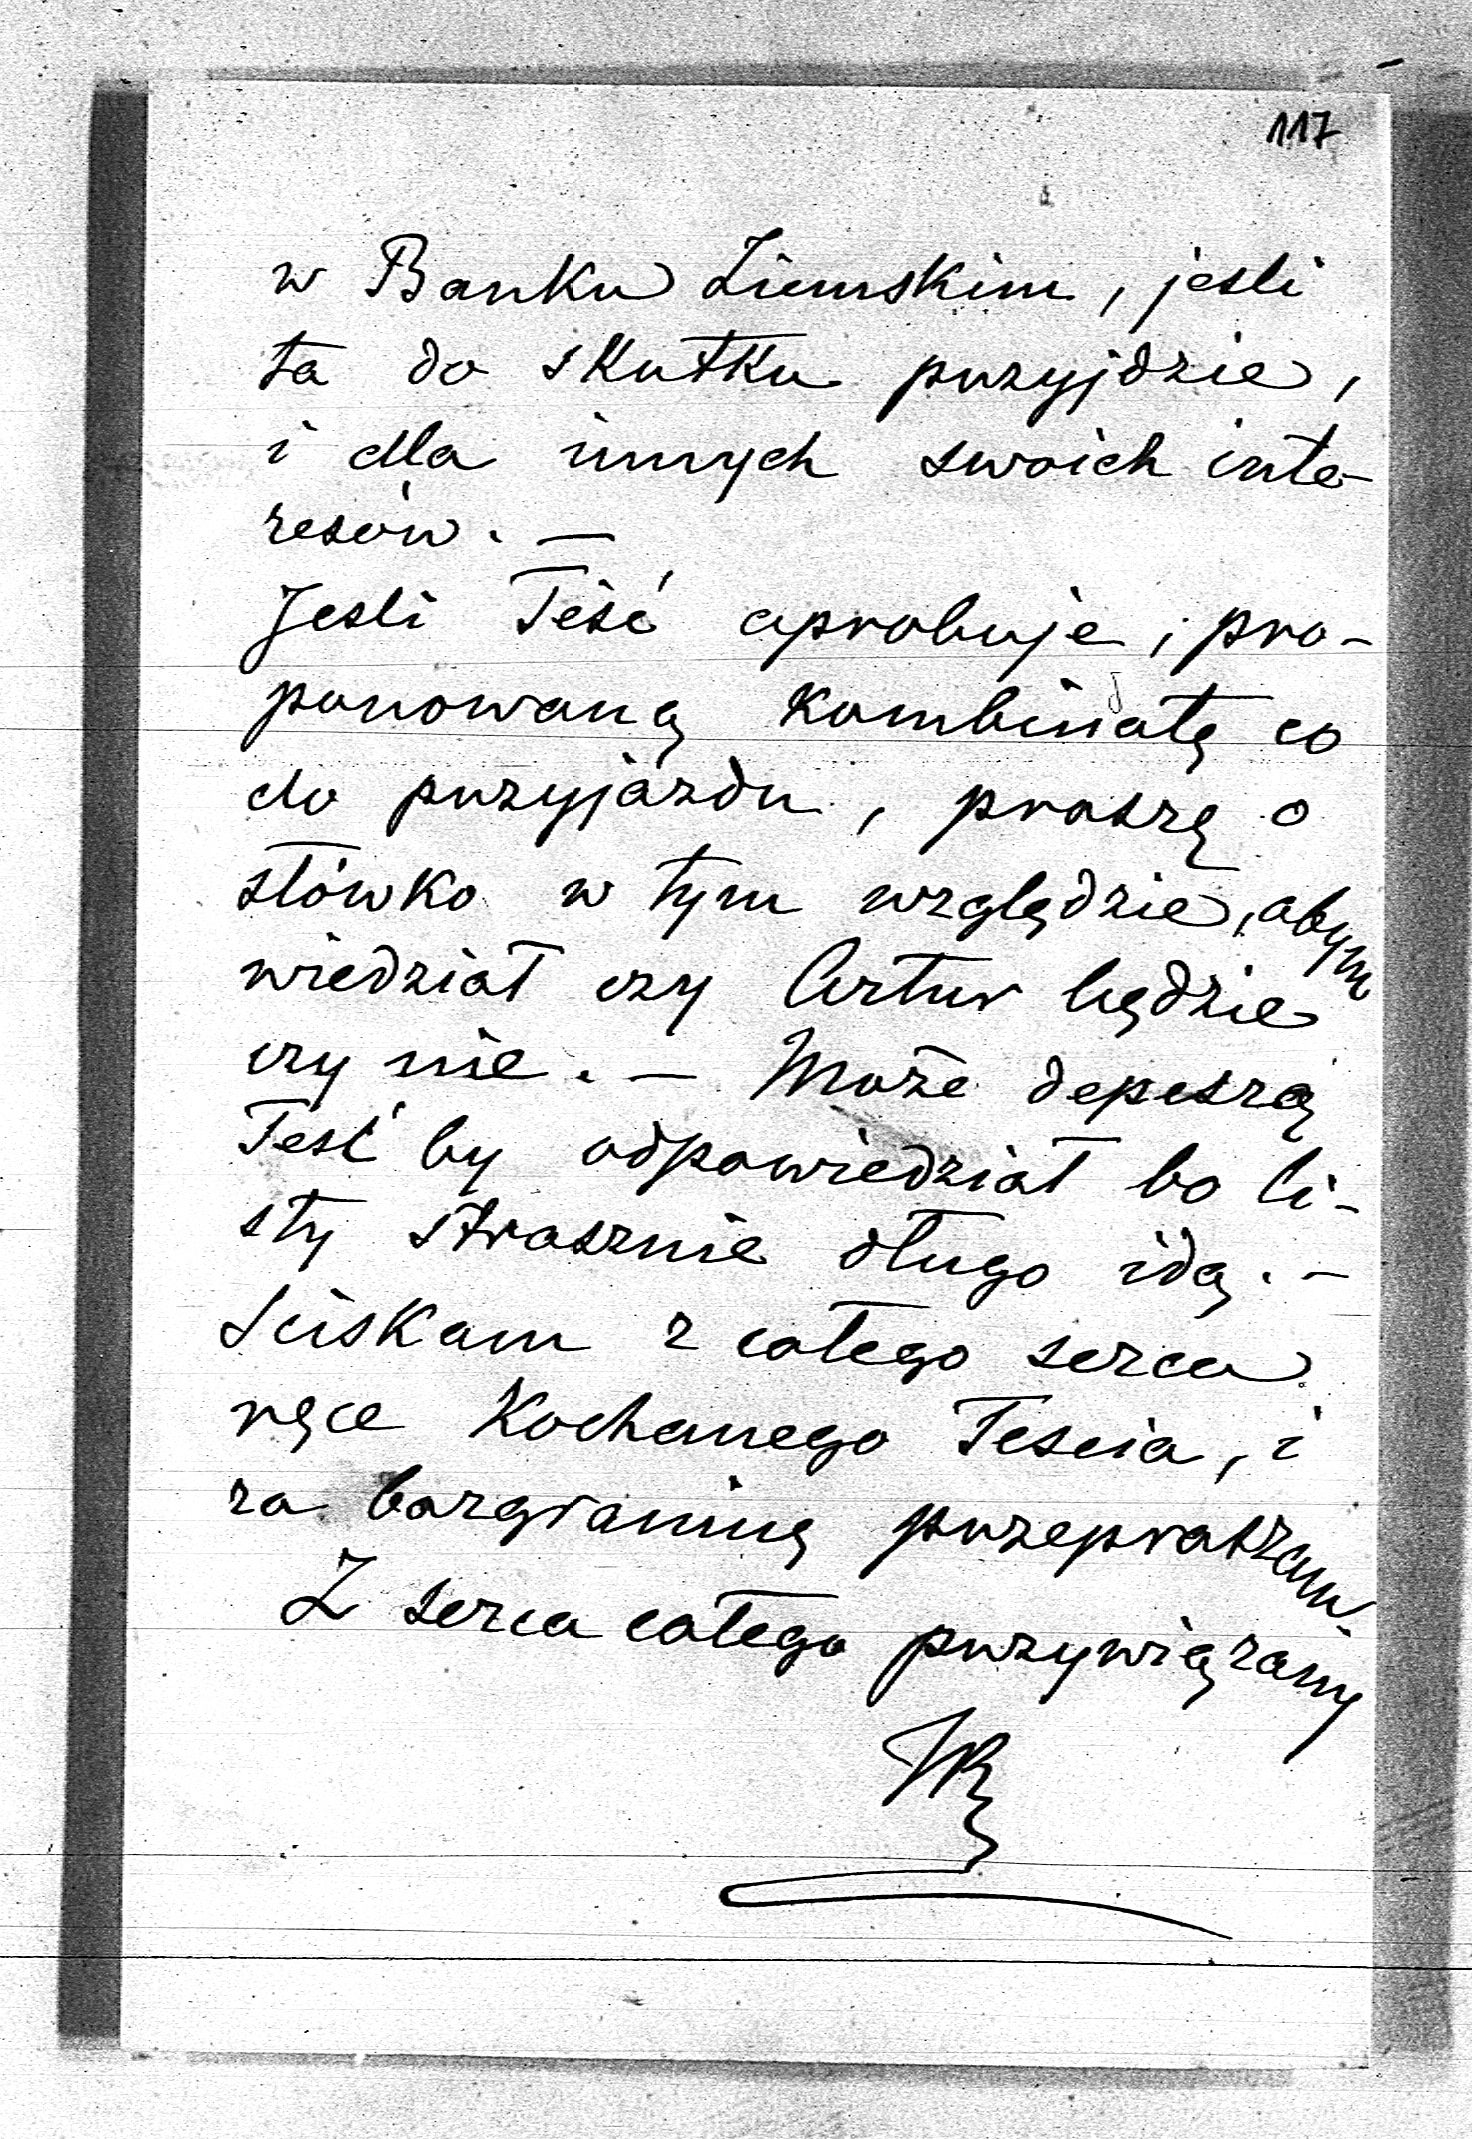 117
w Banku Ziemskim, jeśli
ta do skutku przyjdzie,
i dla innych swoich inte-
resów. —
Jesli Teść aprobuje, pro-
ponowaną kombinatę co
do przyjazdu, proszę o
słówko w tym względzie, abym
wiedział czy Artur będzie
czy nie. — Może depeszą
Teść by odpowiedział bo li-
sty strasznie długo idą. —
Sciskam z całego serca
ręce Kochanego Tescia, i
za bazgraninę przepraszam.
Z serca całego przywiązany